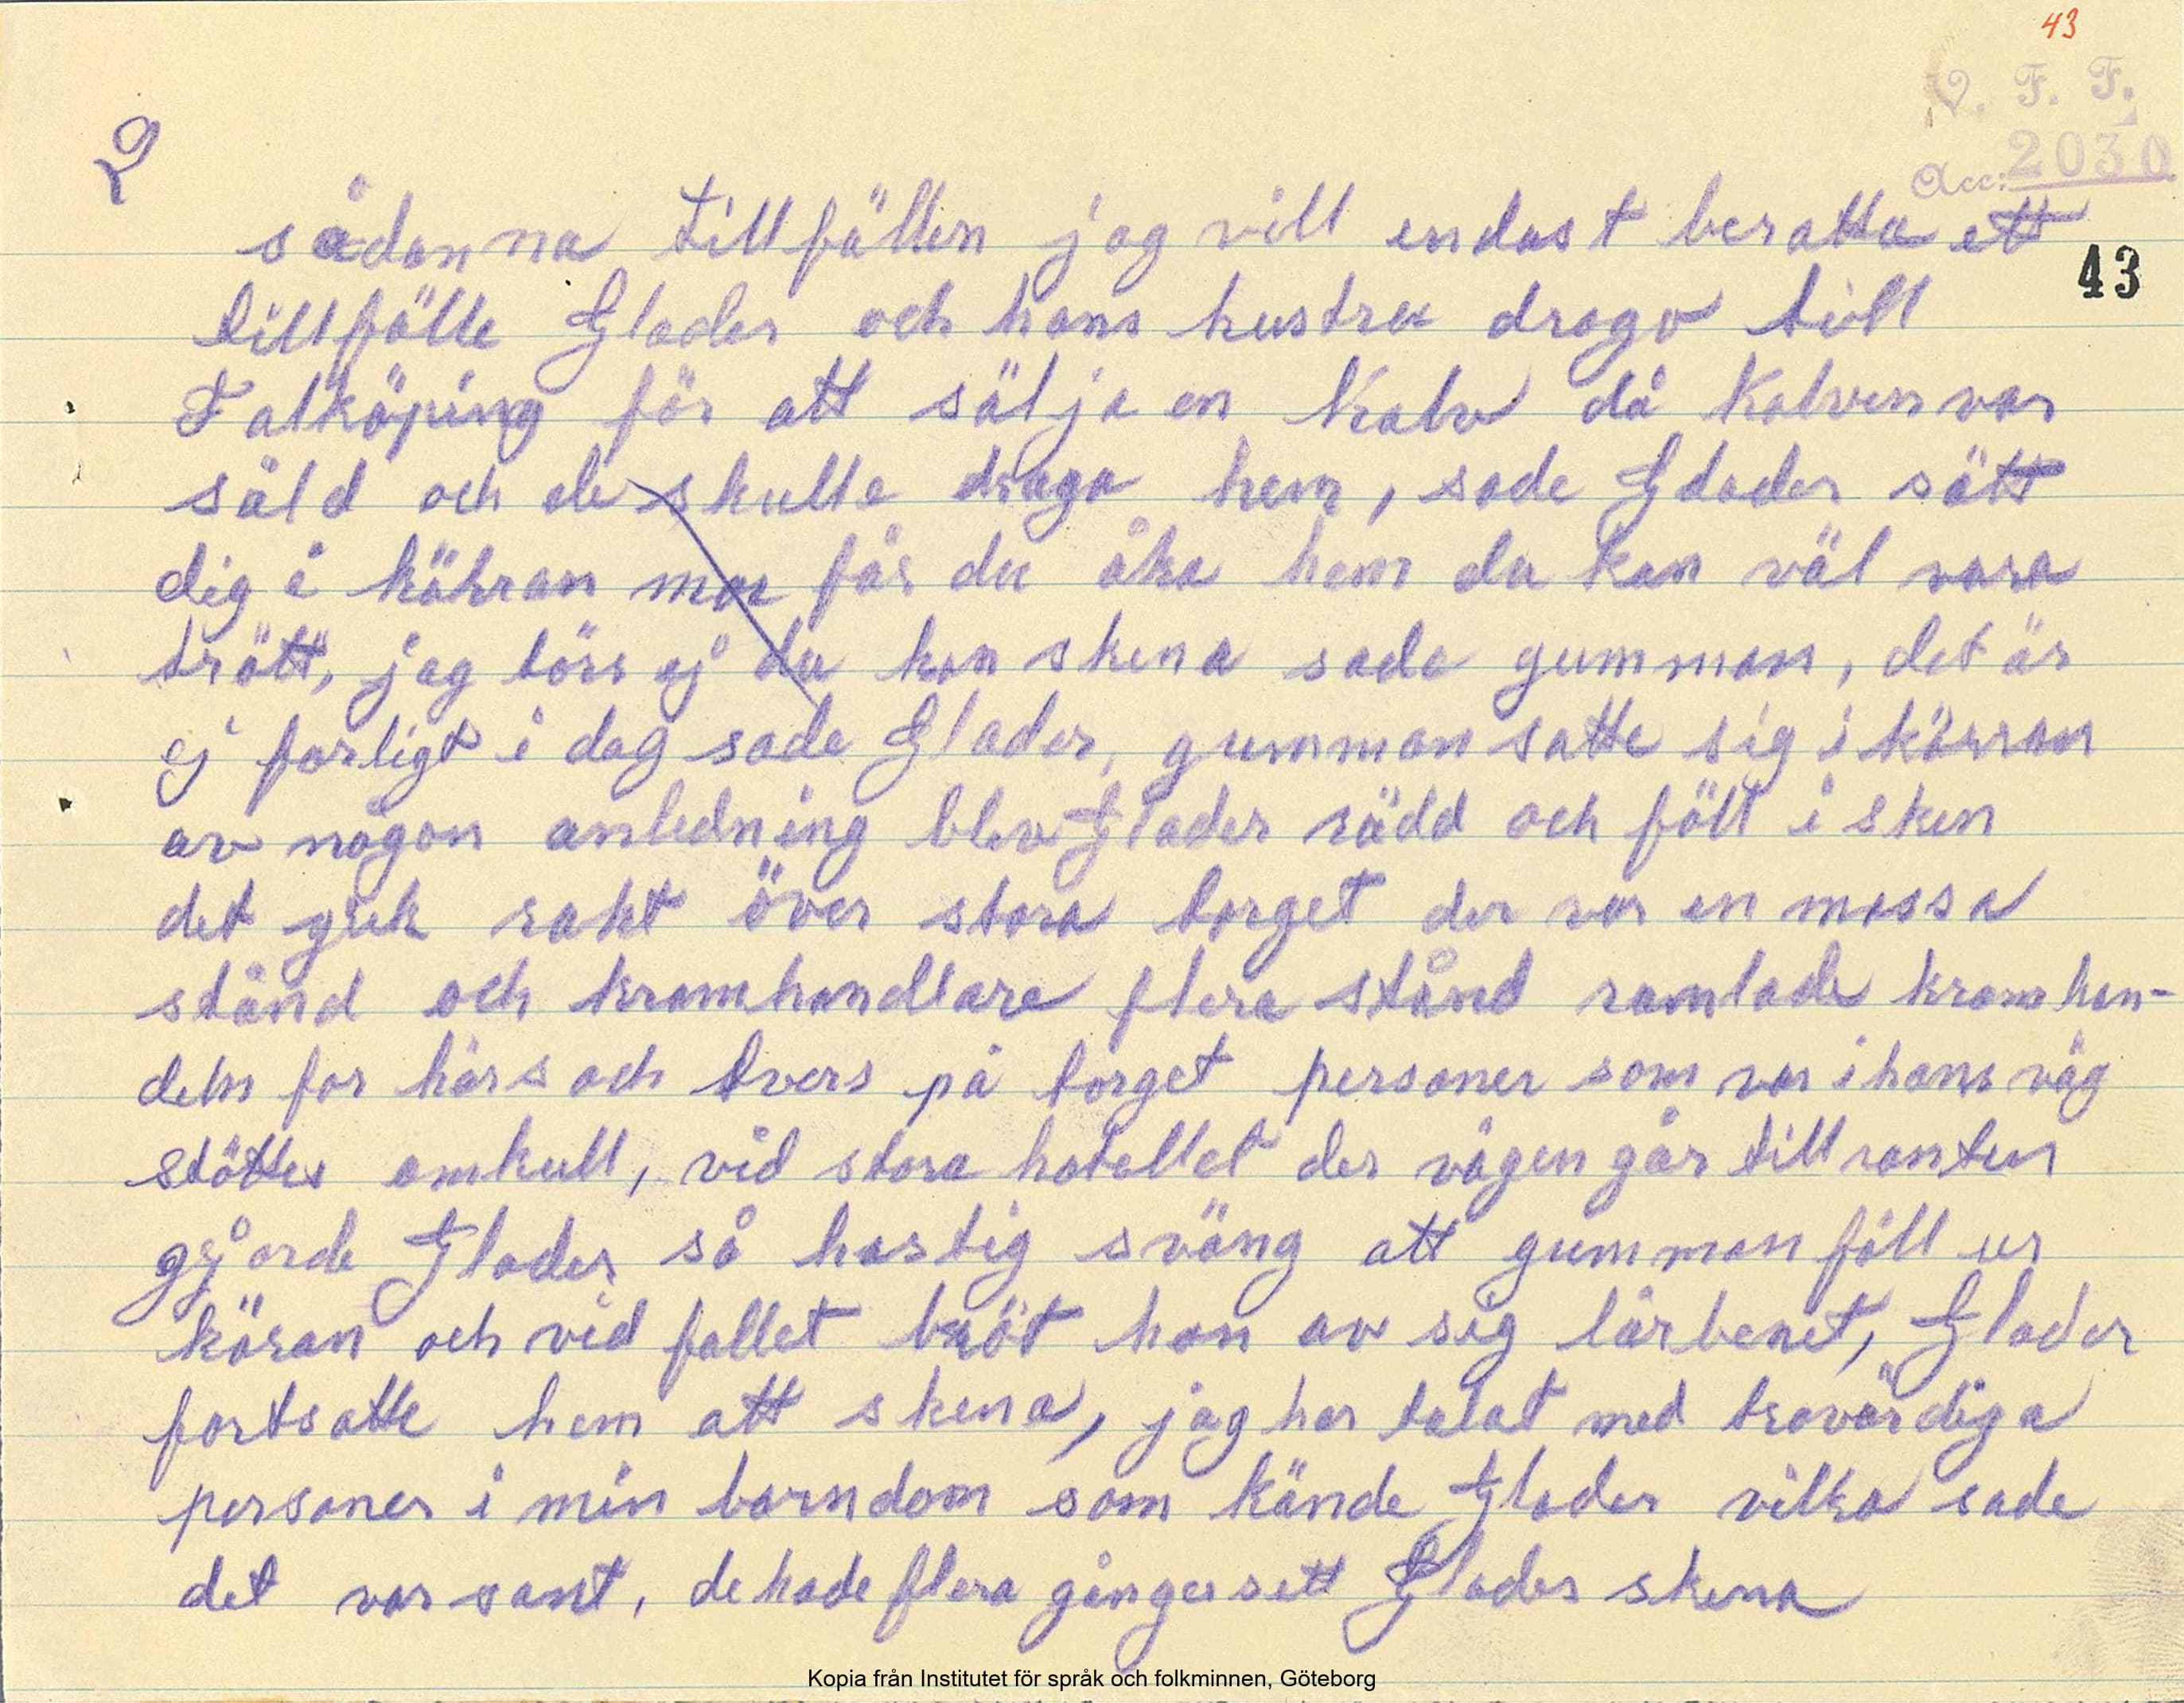 43
V. F. F.
Acc: 2030
2
sådanna tillfällen jag vill endast beratta ett
43
tillfälle Glader och hans hustru drogo till
Falköping för att sälja en Kalv då Kalven var
såld och de skulle draga hem, sade Glader sätt
dig i kähran mor får du åka hem du kan väl vara
trött, jag törs ej du kan skena sade gumman, det är
ej farligt i dag sade Glader, gumman satte sig i kärran
av någon anledning blev Glader rädd och föll i sken
det gick rakt över stora torget der var en massa
stånd och kramhandlare flera stånd ramlade kramhan-
deln for hårs och tvers på torget personer som var i hans väg
stöttes omkull, vid stora hotellet der vägen går till ranten
gjorde Glader så hastig sväng att gumman föll ur
käran och vid fallet bröt hon av sig lårbenet, Glader
fortsatte hem att skena, jag har talat med trovärdiga
personer i min barndom som kände Glader vilka sade
det var sant, de hade flera gånger sett Glader skena
Kopia från Institutet för språk och folkminnen, Göteborg